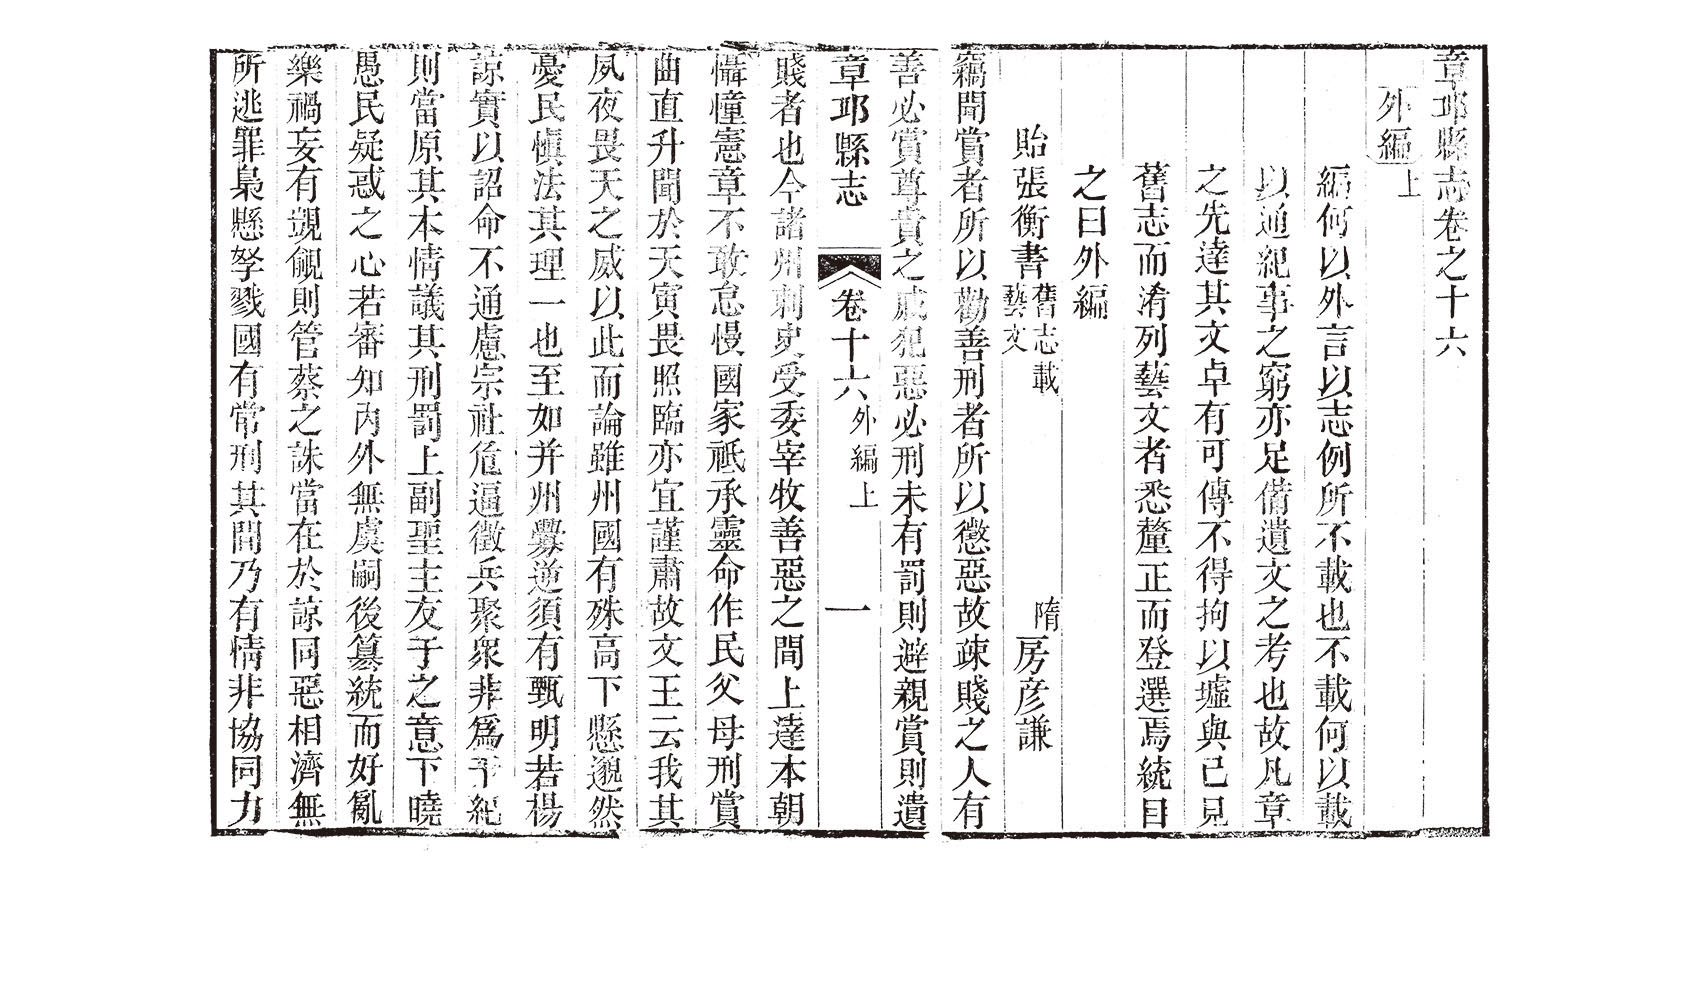 章邱縣志卷之十六
外編上
編何以外言以志例所不載也不載何以載
以通紀事之窮亦足備遺文之考也故凡章
之先達其文卓有可傳不得拘以墟與已見
舊志而淆列藝文者悉釐正而登選焉統目
之曰外編
貽張衡書舊志載藝文 隋房彥謙
竊聞賞者所以勸善刑者所以懲惡故疎賤之人有
善必賞尊貴之戚犯惡必刑未有罰則避親賞則遺
章邱縣志 卷十六外編上 一
賤者也今諸州刺史受委宰牧善惡之間上達本朝
懾憧憲章不敢怠慢國家祗承靈命作民父母刑賞
曲直升聞於天寅畏照臨亦宜謹肅故文王云我其
夙夜畏天之威以此而論雖州國有殊高下懸邈然
憂民愼法其理一也至如并州釁逆須有甄明若楊
諒實以詔命不通慮宗社危逼徵兵聚衆非爲干紀
則當原其本情議其刑罰上副聖主友于之意下曉
愚民疑惑之心若審知內外無虞嗣後篡統而好亂
樂禍妄有覬覦則管蔡之誅當在於諒同惡相濟無
所逃罪梟懸孥戮國有常刑其間乃有情非協同力